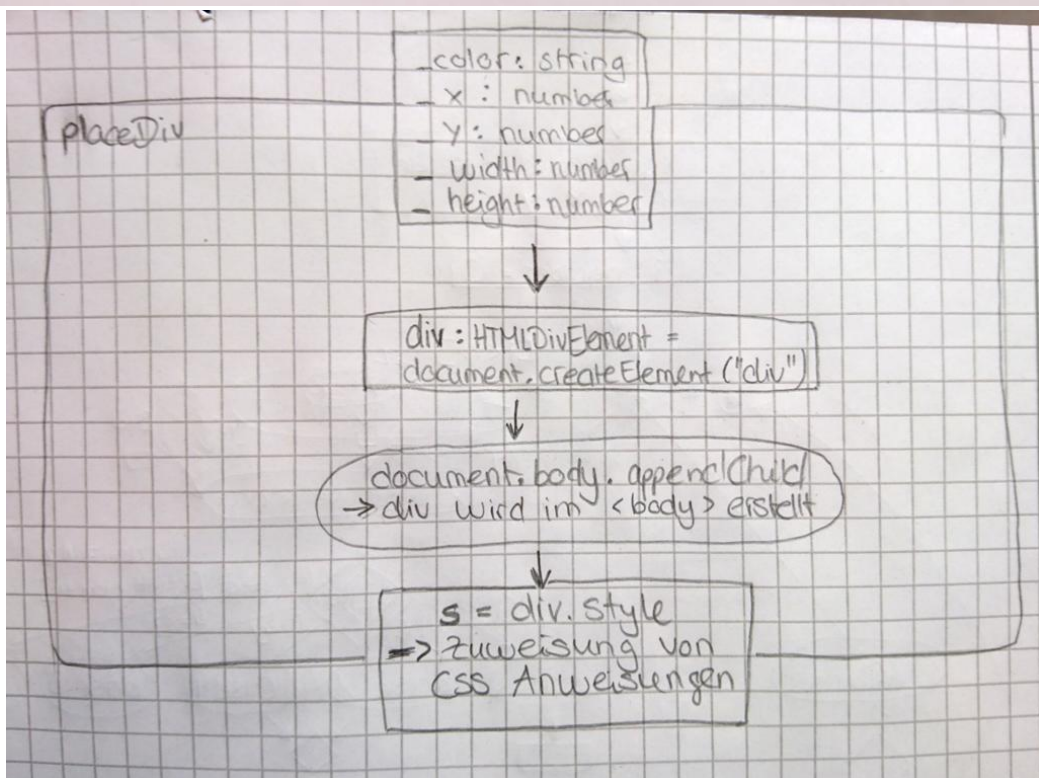 _color: string
_ x : number
_ y : number
_ width: number
_ height: number
placeDiv
div : HTMLDivElement =
document.createElement ("div")
document.body.appendChild
→ div wird im <body> erstellt
s = div.style
→ Zuweisung von
CSS Anweisungen